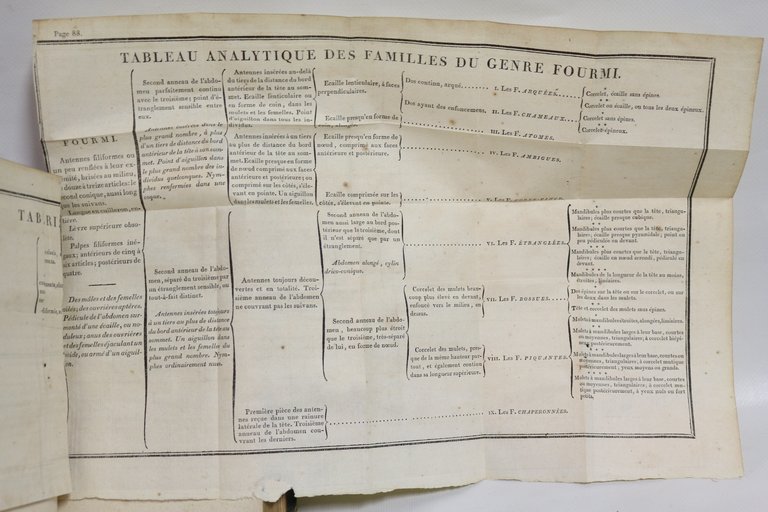 Page 88.
TABLEAU ANALYTIQUE DES FAMILLES DU GENRE FOURMI.
FOURMI.
Antennes filiformes ou
un peu renflées à leur ex-
trémité, brisées au milieu,
douze à treize articles: le
second conique, aussi long
que les suivans.
tière.
Lèvre supérieure obso-
lète.
Palpes filiformes iné-
gaux; antérieurs de cinq à
six articles; postérieurs de
quatre.
Des mâles et des femelles
ailés; des ouvrières aptères.
Pédicule de l'abdomen sur-
monté d'une écaille, ou no-
duleux; anus des ouvrières
et des femelles éjaculant un
acide, ou armé d'un aiguil-
lon.
Second anneau de l'abdo-
men parfaitement continu
avec le troisième; point d'é-
tranglement sensible entre
eux.
plus grand nombre, à plus
d'un tiers de distance du bord
antérieur de la tête à son som-
met. Point d'aiguillon dans
le plus grand nombre des in-
dividus quelconques. Nym-
phes renfermées dans une
coque.
Second anneau de l'abdo-
men, séparé du troisième par
un étranglement sensible, ou
tout-à-fait distinct.
Antennes insérées toujours
à un tiers au plus de distance
du bord antérieur de la tête au
sommet. Un aiguillon dans
les mulets et les femelles du
plus grand nombre. Nym-
phes ordinairement nues.
Antennes insérées au-delà
du tiers de la distance du bord
antérieur de la tête au som-
met. Ecaille lenticulaire ou
en forme de coin, dans les
mulets et les femelles. Point
d'aiguillon dans tous les in-
dividus.
Antennes insérées à un tiers
au plus de distance du bord
antérieur de la tête au som-
met. Ecaille presqu'en forme
de nœud, comprimé aux faces
antérieure et postérieure; ou
comprimé sur les côtés, s'éle-
vant en pointe. Un aiguillon
dans les mulets et les femelles.
Antennes toujours décou-
vertes et en totalité. Troi-
sième anneau de l'abdomen
ne couvrant pas les suivans.
Première pièce des anten-
nes reçue dans une rainure
latérale de la tête. Troisième
anneau de l'abdomen cou-
vrant les derniers.
Ecaille lenticulaire, à faces
perpendiculaires.
Ecaille presqu'en forme de
Ecaille presqu'en forme de
nœud, comprimé aux faces
antérieure et postérieure.
Ecaille comprimée sur les
côtés, s'élevant en pointe.
Second anneau de l'abdo-
men aussi large au bord pos-
térieur que le troisième, dont
il n'est séparé que par un
étranglement.
Abdomen alongé, cylin-
drico-conique.
Second anneau de l'abdo-
men, beaucoup plus étroit
que le troisième, très-séparé
de lui, en forme de nœud.
Dos continu, arqué
Dos ayant des enfoncemens.
Corcelet des mulets beau-
coup plus élevé en devant,
enfoncé vers le milieu, en
dessus.
Corcelet des mulets, pres-
que de la même hauteur par-
tout, et également continu
dans sa longueur supérieure.
I. Les F. ARQUÉES.
II. Les F. CHAMEAUX.
III. Les F. ATOMES.
IV. Les F. AMBIGUES.
VI. Les F. ÉTRANGLÉES.
VII. Les F. BOSSUES.
VIII. Les F. PIQUANTES.
IX. Les F. CHAPERONNÉES.
*
Corcelet, écaille sans épines.
* *
Corcelet ou écaille, ou tous les deux épineux.
*
Corcelet sans épines.
* *
Corcelet épineux.
*
Mandibules plus courtes que la tête, triangu-
laires; écaille presque cubique.
* *
Mandibules plus courtes que la tête, triangu-
laires; écaille presque pyramidale; point ou
peu pédiculée en devant.
* * *
Mandibules plus courtes que la tête, triangu-
laires; écaille en nœud arrondi, pédiculé en
devant.
* * * *
Mandibules de la longueur de la tête au moins,
étroites, linéaires.
*
Des épines sur la tête ou sur le corcelet, ou sur
les deux dans les mulets.
* *
Tête et corcelet des mulets sans épines.
*
Mulets à mandibules étroites, alongées, linéaires.
* *
Mulets à mandibules larges à leur base, courtes
ou moyennes, triangulaires; à corcelet biépi-
neux postérieurement.
* * *
Mulets à mandibules larges à leur base, courtes ou
moyennes, triangulaires; à corcelet mutique
postérieurement; yeux moyens ou grands.
* * * *
Mulets à mandibules larges à leur base, courtes
ou moyennes, triangulaires; à corcelet mu-
tique postérieurement, à yeux nuls ou fort
petits.
TAB.